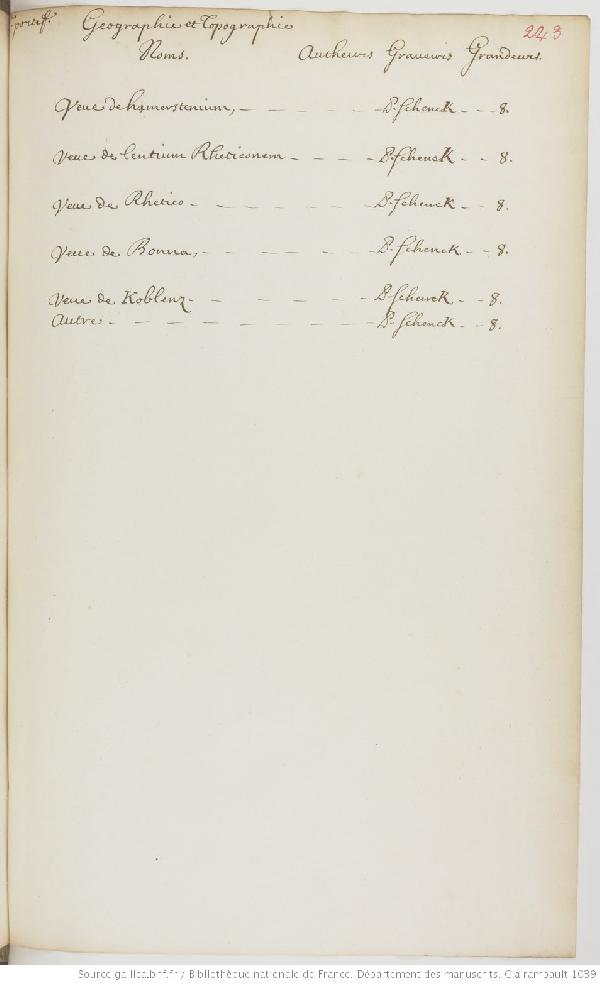 portef. Geographie et Topographie 243
Noms. Autheurs Graueurs Grandeurs.
Veue de hamerstenium, — — — — — P. Schenck — — 8.
Veue de Lentium Rheticonem — — — — P. Schenck — — 8.
Veue de Rhetico — — — — — P. Schenck — — 8.
Veue de Bonna, — — — — — P. Schenck — — 8.
Veue de Koblenz — — — — — P. Schenck — — 8.
Autre — — — — — — P. Schenck — — 8.
Source gallica.bnf.fr / Bibliothèque nationale de France. Département des manuscrits. Clairambault 1039